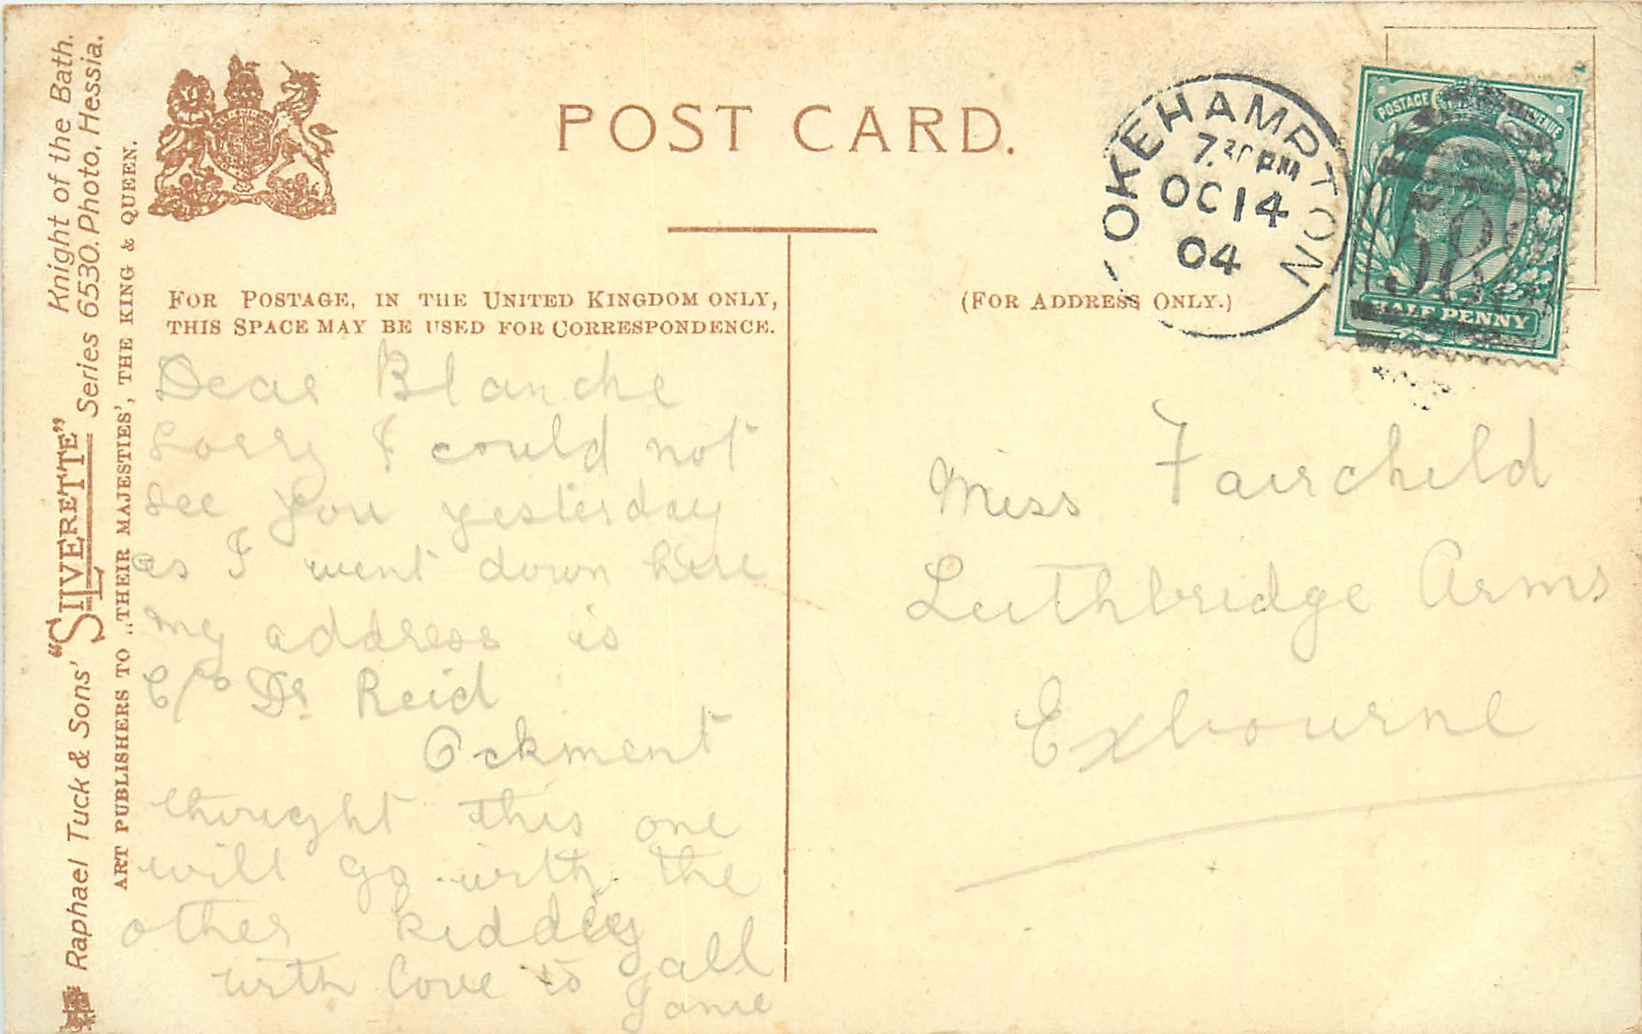 Knight of the Bath.
Series 6530. Photo, Hessia.
Raphael Tuck & Sons' "SILVERETTE"
ART PUBLISHERS TO „THEIR MAJESTIES', THE KING & QUEEN.
POST CARD.
FOR POSTAGE, IN THE UNITED KINGDOM ONLY,
THIS SPACE MAY BE USED FOR CORRESPONDENCE.
(FOR ADDRESS ONLY.)
OKEHAMPTON
7.30 PM
OC 14
04
POSTAGE REVENUE
58
HALF PENNY
Dear Blanche
Sorry I could not
see you yesterday
as I went down here
my address is
C/o Dr. Reid
Ockment
thought this one
will go with the
other kiddies
with love to all
Janie
Miss Fairchild
Luthbridge Arms
Exbourne